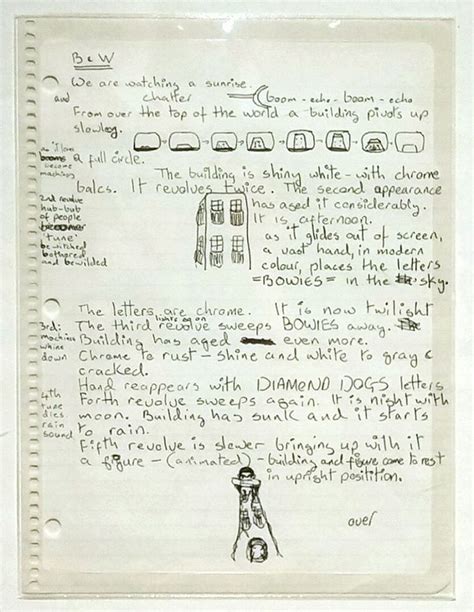 B & W
We are watching a sunrise.
and chatter boom - echo - boom - echo
From over the top of the world a building pivots up
slowly.
a full circle.
become
machinery
The building is shiny white - with chrome
balcs. It revolves twice. The second appearance
has aged it considerably.
It is afternoon.
as it glides out of screen,
a vast hand, in modern
colour, places the letters
=BOWIES= in the sky.
2nd revolve
hub-bub
of people
'tune'
bewitched
bothered
and bewilded
The letters are chrome. It is now twilight
lights go on
The third revolve sweeps BOWIES away.
Building has aged even more.
Chrome to rust - shine and white to gray &
cracked.
3rd:
machine
whine
down
Hand reappears with DIAMOND DOGS letters
Forth revolve sweeps again. It is night with
moon. Building has sunk and it starts
to rain.
4th
tune
dies
rain
sound
Fifth revolve is slower bringing up with it
a figure - (animated) - building and figure come to rest
in upright positition.
over